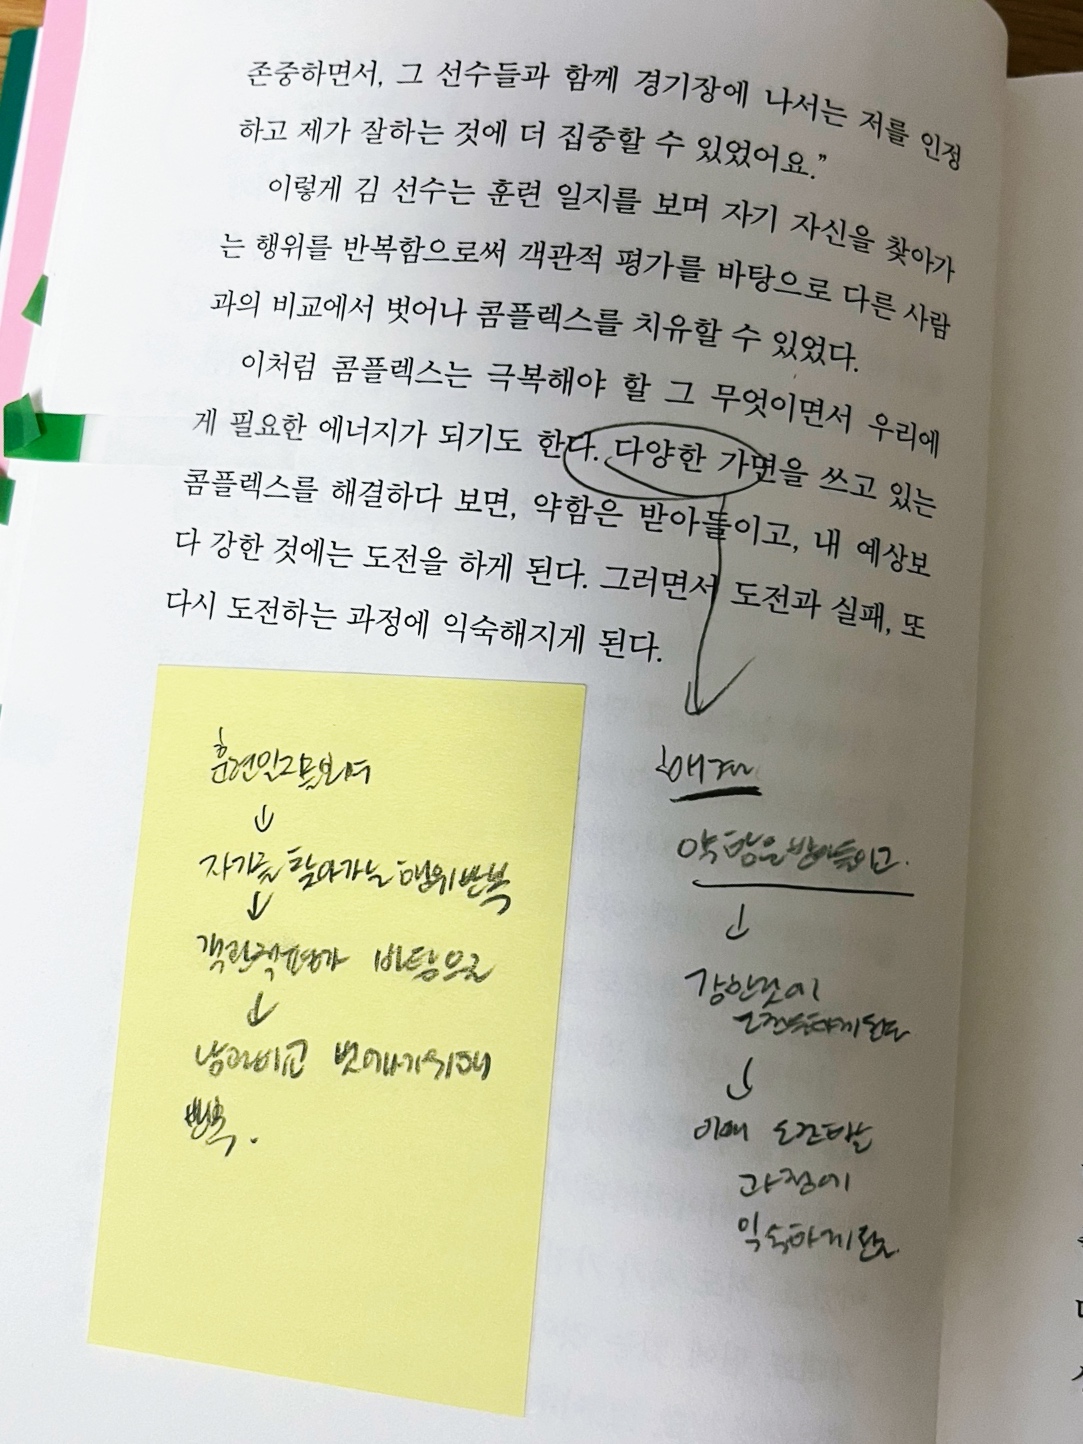 존중하면서, 그 선수들과 함께 경기장에 나서는 저를 인정
하고 제가 잘하는 것에 더 집중할 수 있었어요.”
이렇게 김 선수는 훈련 일지를 보며 자기 자신을 찾아가
는 행위를 반복함으로써 객관적 평가를 바탕으로 다른 사람
과의 비교에서 벗어나 콤플렉스를 치유할 수 있었다.
이처럼 콤플렉스는 극복해야 할 그 무엇이면서 우리에
게 필요한 에너지가 되기도 한다. 다양한 가면을 쓰고 있는
콤플렉스를 해결하다 보면, 약함은 받아들이고, 내 예상보
다 강한 것에는 도전을 하게 된다. 그러면서 도전과 실패, 또
다시 도전하는 과정에 익숙해지게 된다.
훈련일지를보며
↓
자기를 찾아가는 행위반복
↓
객관적평가 바탕으로
↓
남과비교 벗어나기위해
반복.
해결
약함은받아들이고.
↓
강한것에
↓
도전하는
과정에
익숙하게된다.